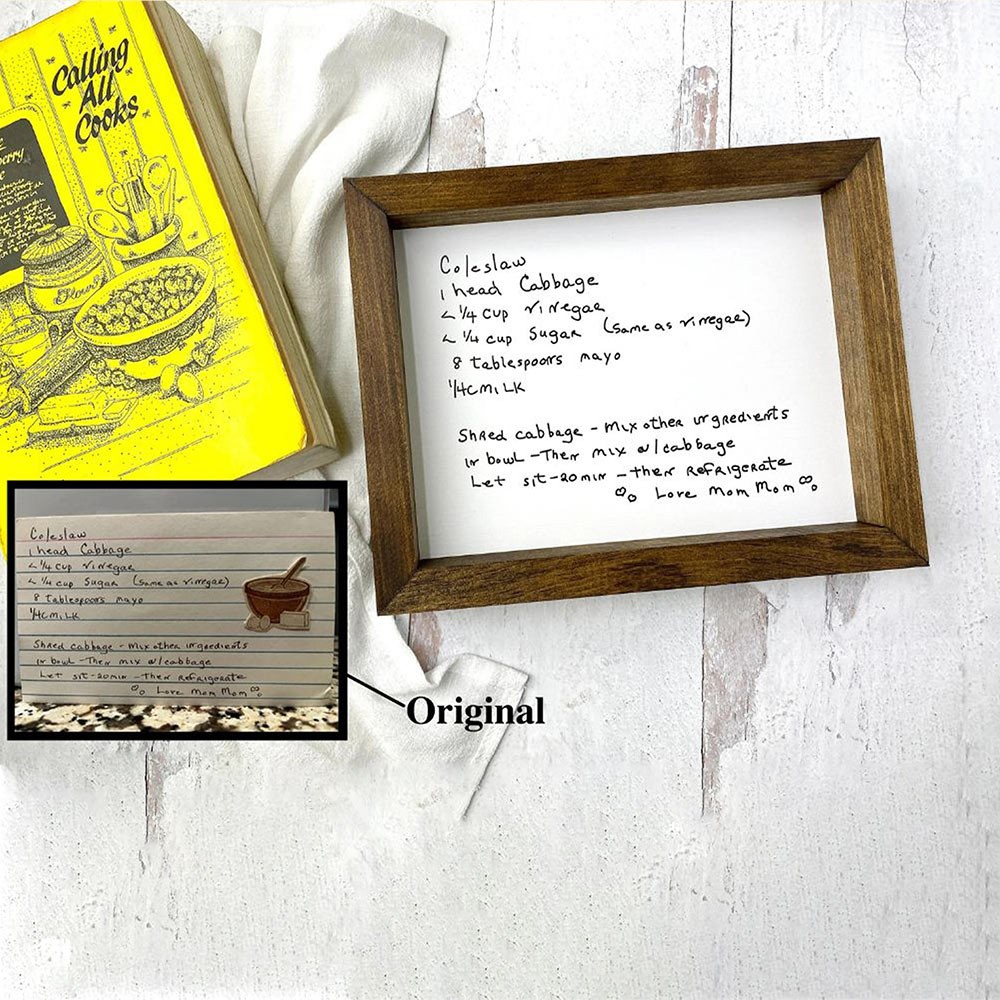 Calling
All
Cooks
Flour
Coleslaw
1 head Cabbage
< 1/4 cup vinegar
< 1/4 cup Sugar (same as vinegar)
8 tablespoons mayo
1/4 C MILK
Shred cabbage - Mix other ingredients
in bowl - Then mix w/cabbage
Let sit - 20 min - then Refrigerate
Love Mom Mom
Coleslaw
1 head Cabbage
< 1/4 cup vinegar
< 1/4 cup Sugar (same as vinegar)
8 tablespoons mayo
1/4 C MILK
Shred cabbage - Mix other ingredients
in bowl - Then mix w/cabbage
Let sit - 20 min - Then Refrigerate
Love Mom Mom
Original